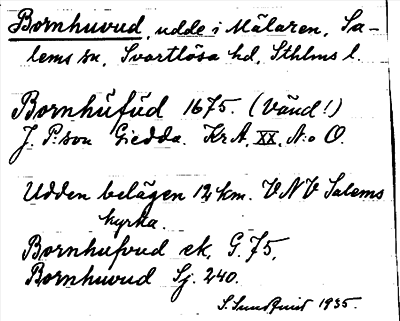 Bornhuvud, udde i Mälaren, Sa-
lems sn, Svartlösa hd, Sthlms l.
Bornhŭfŭd 1675. (Vänd!)
J. P:son Giedda. KrA, XX, N:o O.
Udden belägen 12 km. VNV Salems
kyrka.
Bornhufvud ek. G. 75,
Bornhuvud Sj. 240.
S. Sundquist 1935.